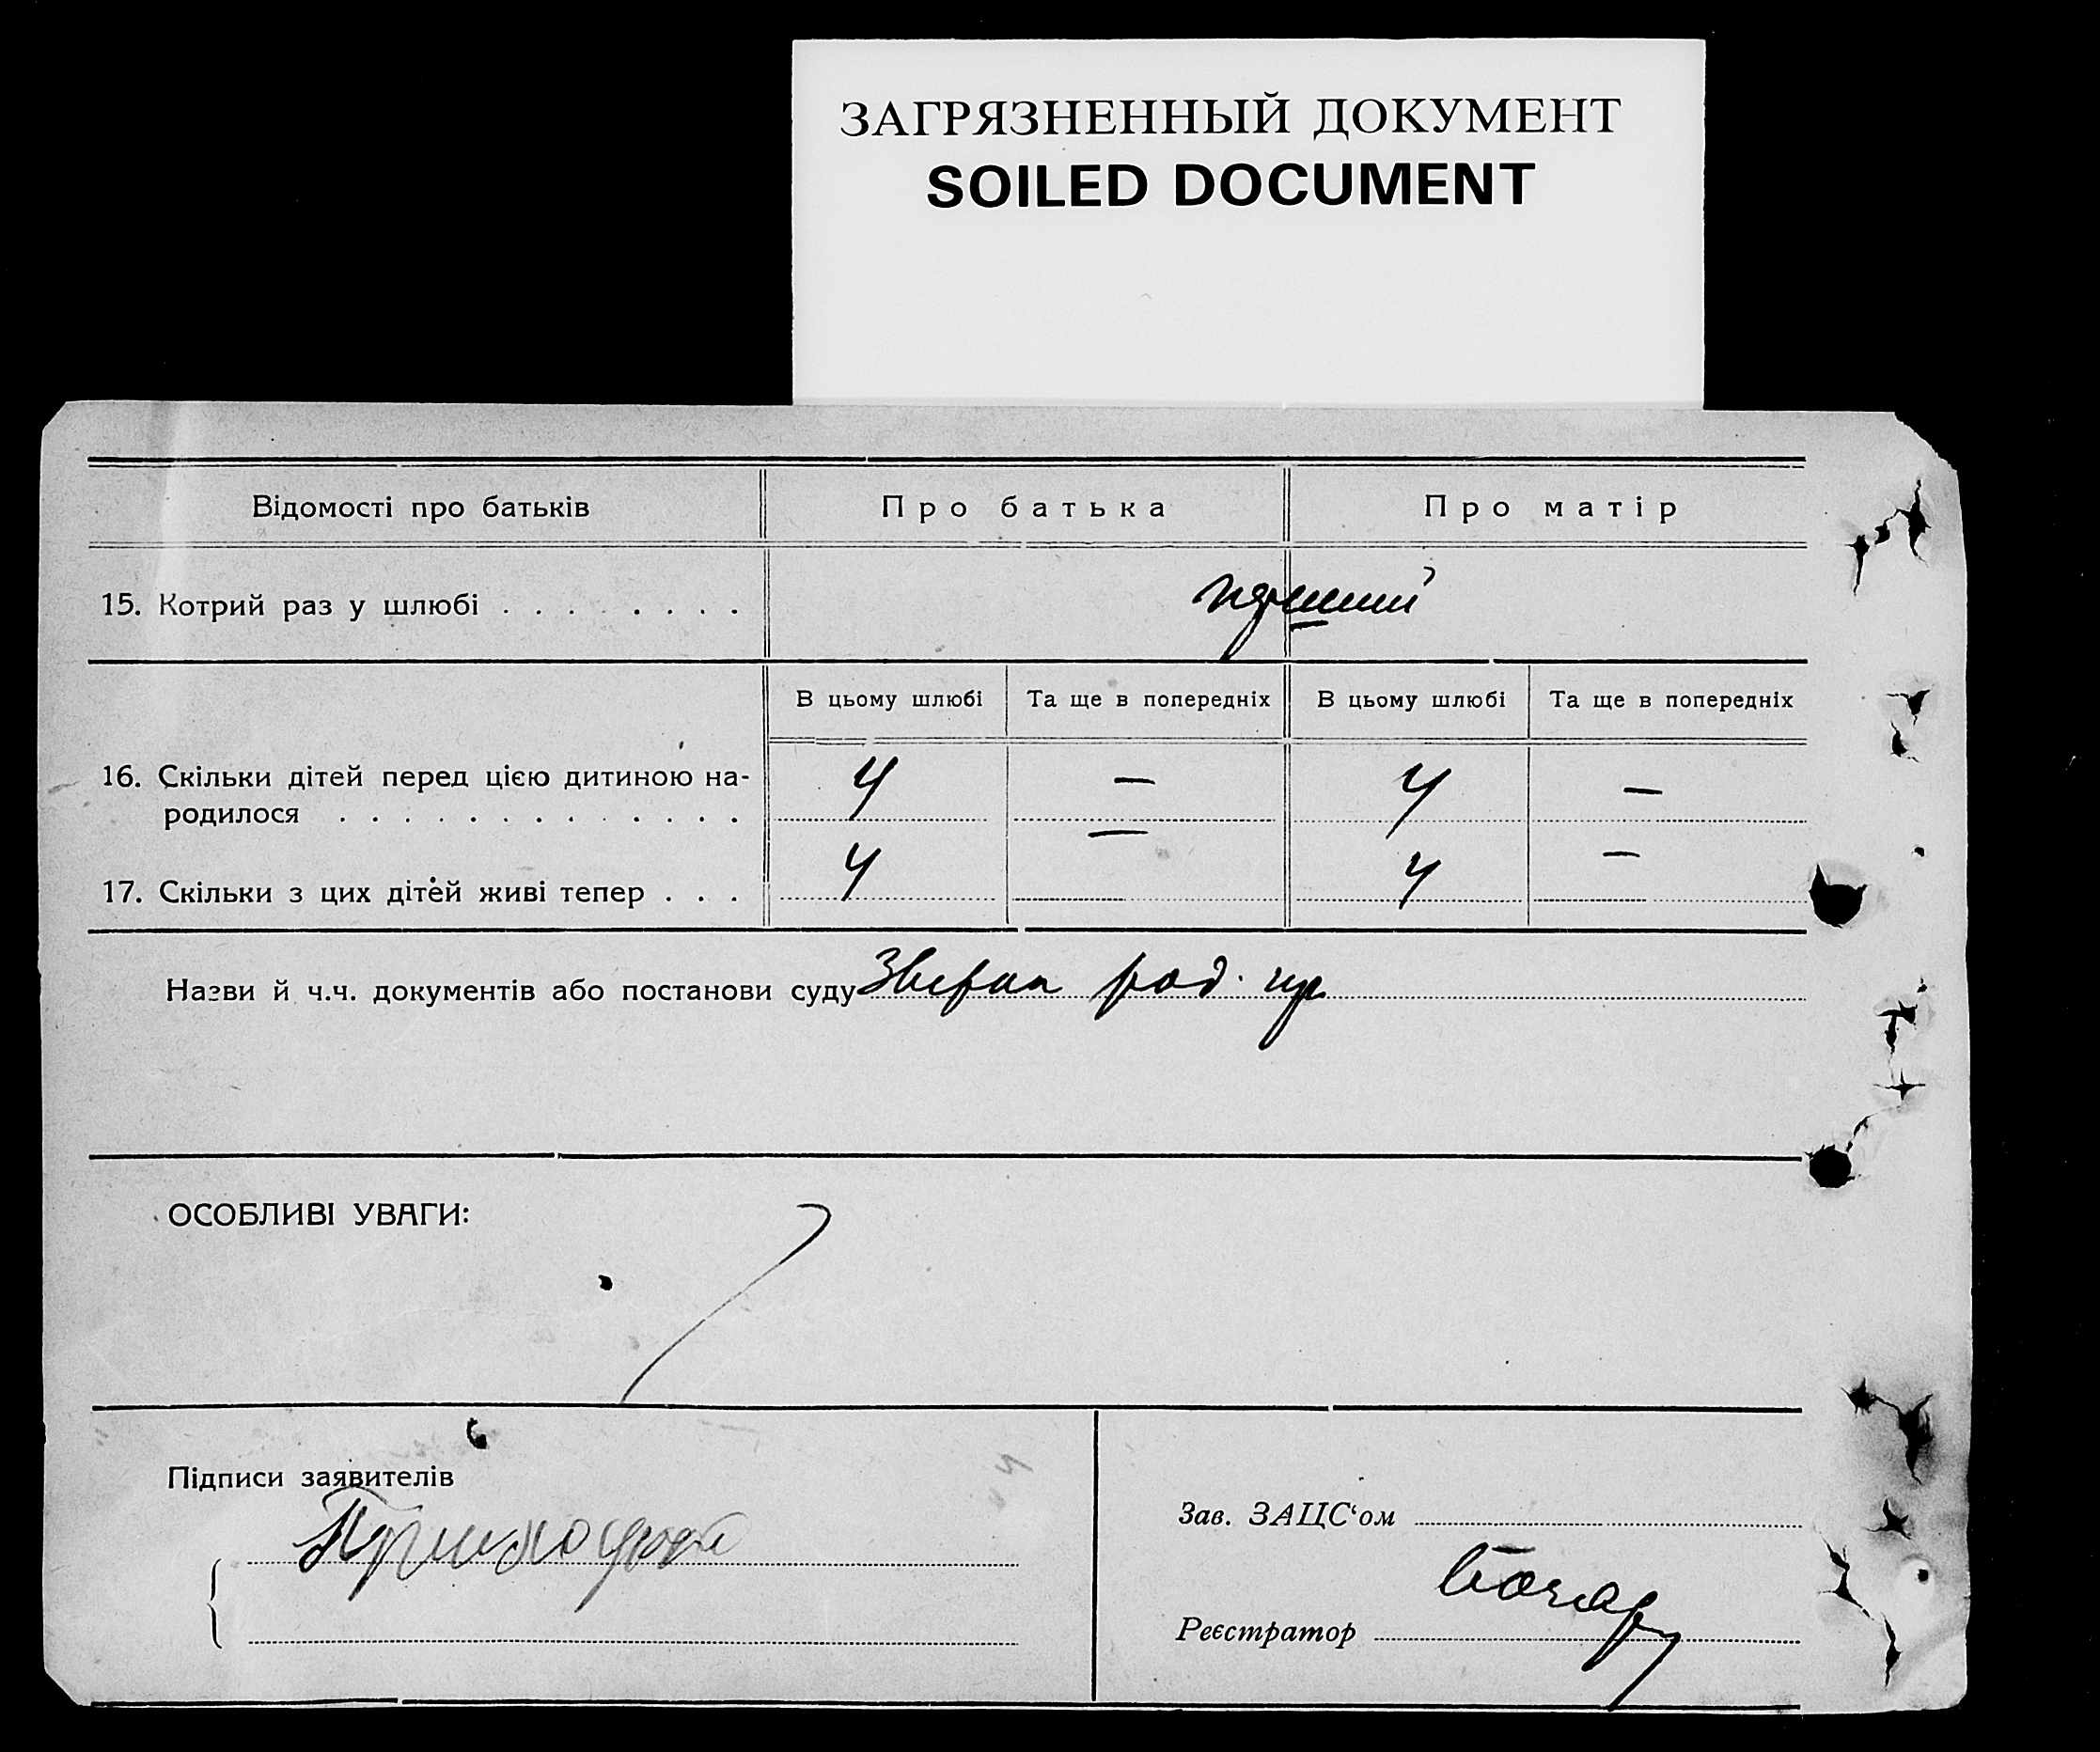 ЗАГРЯЗНЕННЫЙ ДОКУМЕНТ
SOILED DOCUMENT
Відомості про батьків Про батька Про матір
15. Котрий раз у шлюбі . . . . . . . .
В цьому шлюбі Та ще в попередніх В цьому шлюбі Та ще в попередніх
16. Скільки дітей перед цією дитиною на-
родилося . . . . . . . . . . . . . 4 — 4 —
17. Скільки з цих дітей живі тепер . . . 4 — 4 —
Назви й ч.ч. документів або постанови суду
ОСОБЛИВІ УВАГИ:
Підписи заявителів
Зав. ЗАЦС‘ом
Реєстратор